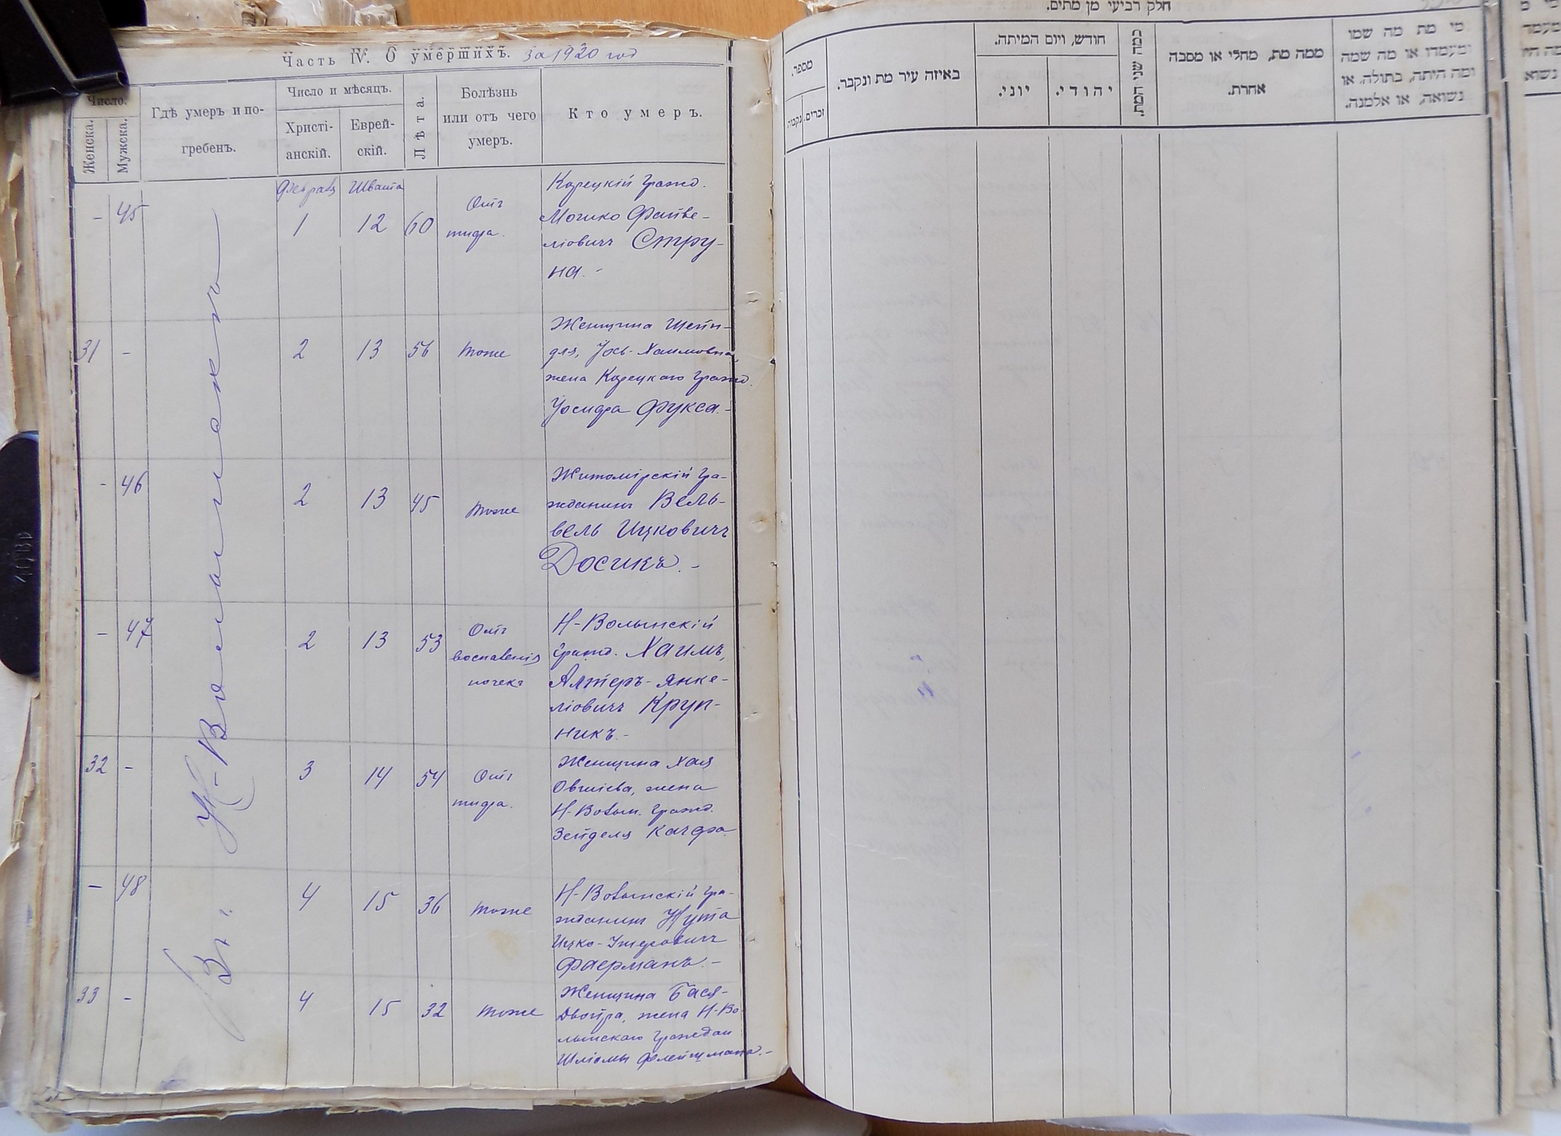 Часть IV. О умершихъ. За 1920 год
Число.
Женска.
Мужска.
Гдѣ умеръ и по-
гребенъ.
Число и мѣсяцъ.
Христі-
анскій.
Еврей-
скій.
Лѣта.
Болѣзнь
или отъ чего
умеръ.
Кто умеръ.
Въ г. Н-Волынскѣ
Февраля Швата
- 45 1 12 60
Отъ
тифа.
Корецкій гражд.
Мошко Файве-
ліовичъ Стру-
на. -
31 - 2 13 56 тоже
Женщина Шейн-
для, Хаимовна,
жена Корецкаго гражд.
Іосифа Фукса. -
- 46 2 13 45 тоже
Житомірскій гра-
жданинъ Вель-
вель Ицковичъ
Досикъ. -
- 47 2 13 53
Отъ
воспаленія
почекъ
Н-Волынскій
гражд. Хаимъ,
Алтеръ-Янке-
ліовичъ Круп-
никъ. -
32 - 3 14 54
Отъ
тифа.
Женщина Хая
Овшіева, жена
Н-Волын. гражд.
Зейделя
- 48 4 15 36 тоже
Н-Волынскій гра-
жданинъ Нута
Ицко-
Фаерманъ. -
33 - 4 15 32 тоже
Женщина Бася-
Двойра, жена Н-Во-
лынскаго граждан
Шліомы Флейшмана. -
חלק רביעי מן מתים.
מספר.
זכרים. נקבות.
באיזה עיר מת ונקבר.
חודש, ויום המיתה.
יוני.
יהודי.
כמה שני חייו.
ממה מת, מחלי או מסבה
אחרת.
מי מת מה שמו
ומעמדו או מה שמה
ומה היתה, בתולה, או
נשואה, או אלמנה.